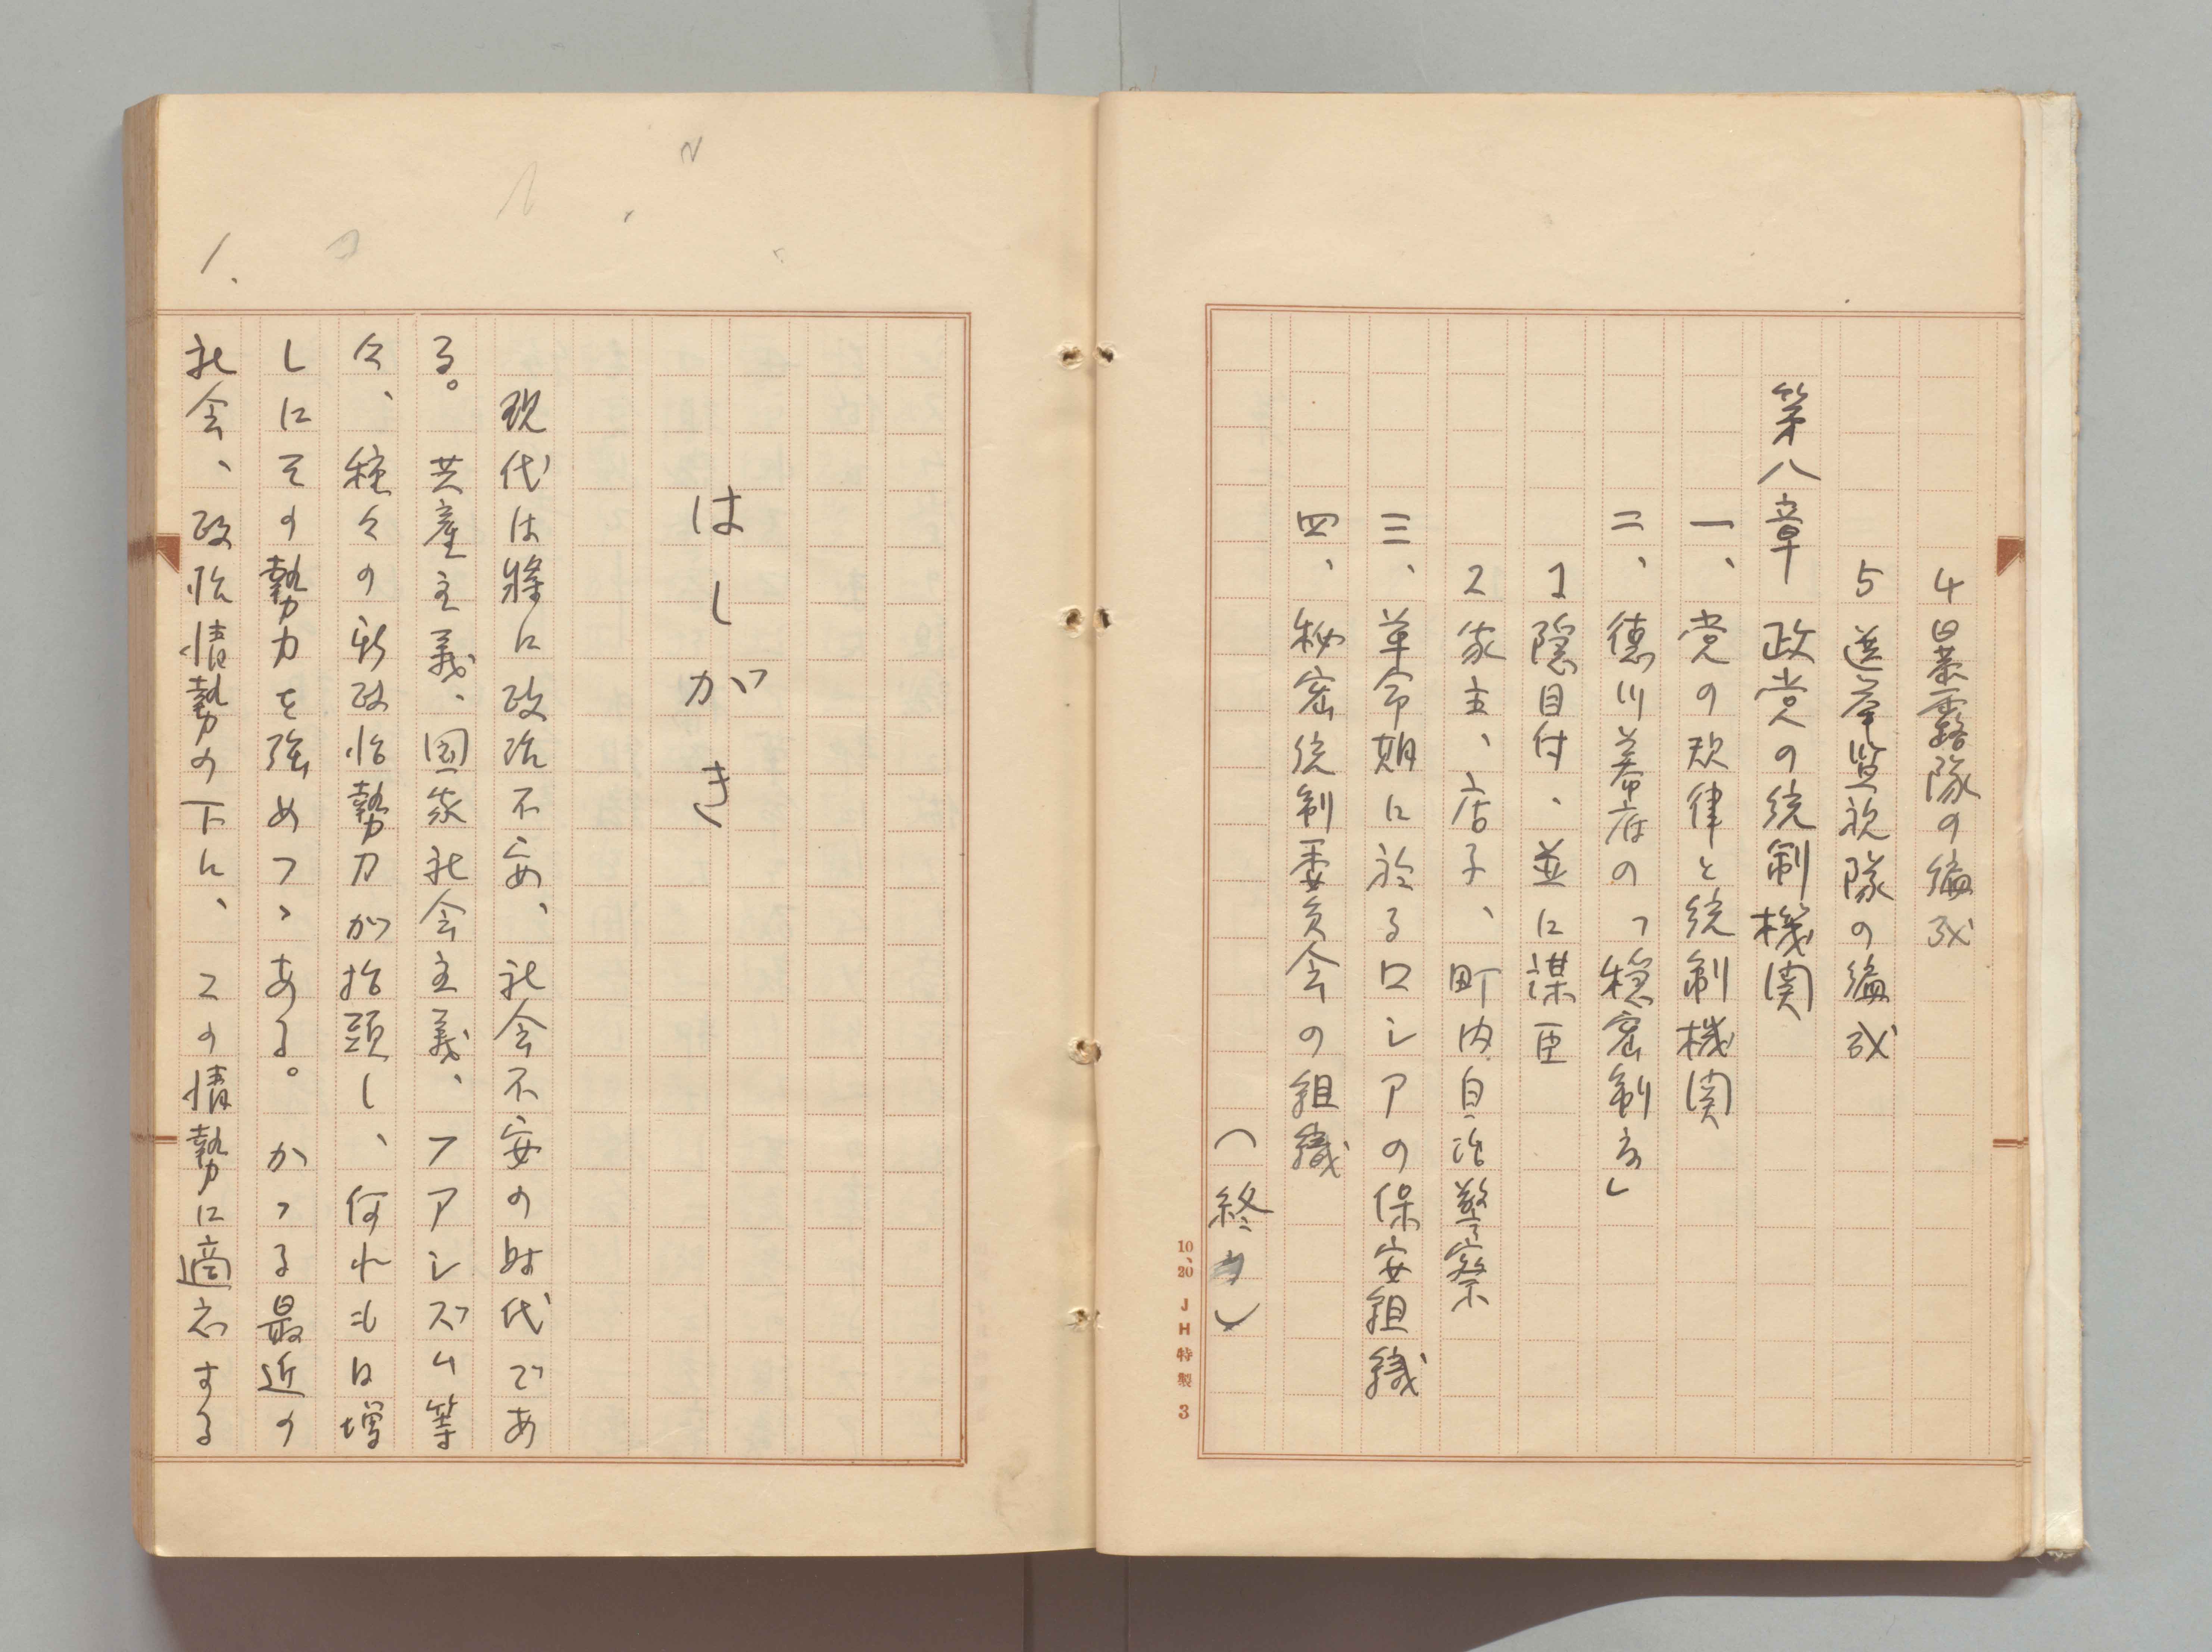 4 暴露隊の編成
5 選挙監視隊の編成
第八章 政党の統制機関
一、党の規律と統制機関
二、徳川幕府の「穏密制度」
1 隠目付、並に謀臣
2 家主、店子、町内自治警察
三、革命期に於るロシアの保安組織
四、秘密統制委員会の組織
(終り)
10、20 JH特製 3
はしがき
現代は將に政治不安、社会不安の時代であ
る。共産主義、国家社会主義、フアシズム等
々、種々の新政治勢力が抬頭し、何れもは増
しにその勢力を強めつゝある。かゝる最近の
社会、政治情勢の下に、この情勢に適応する
1.